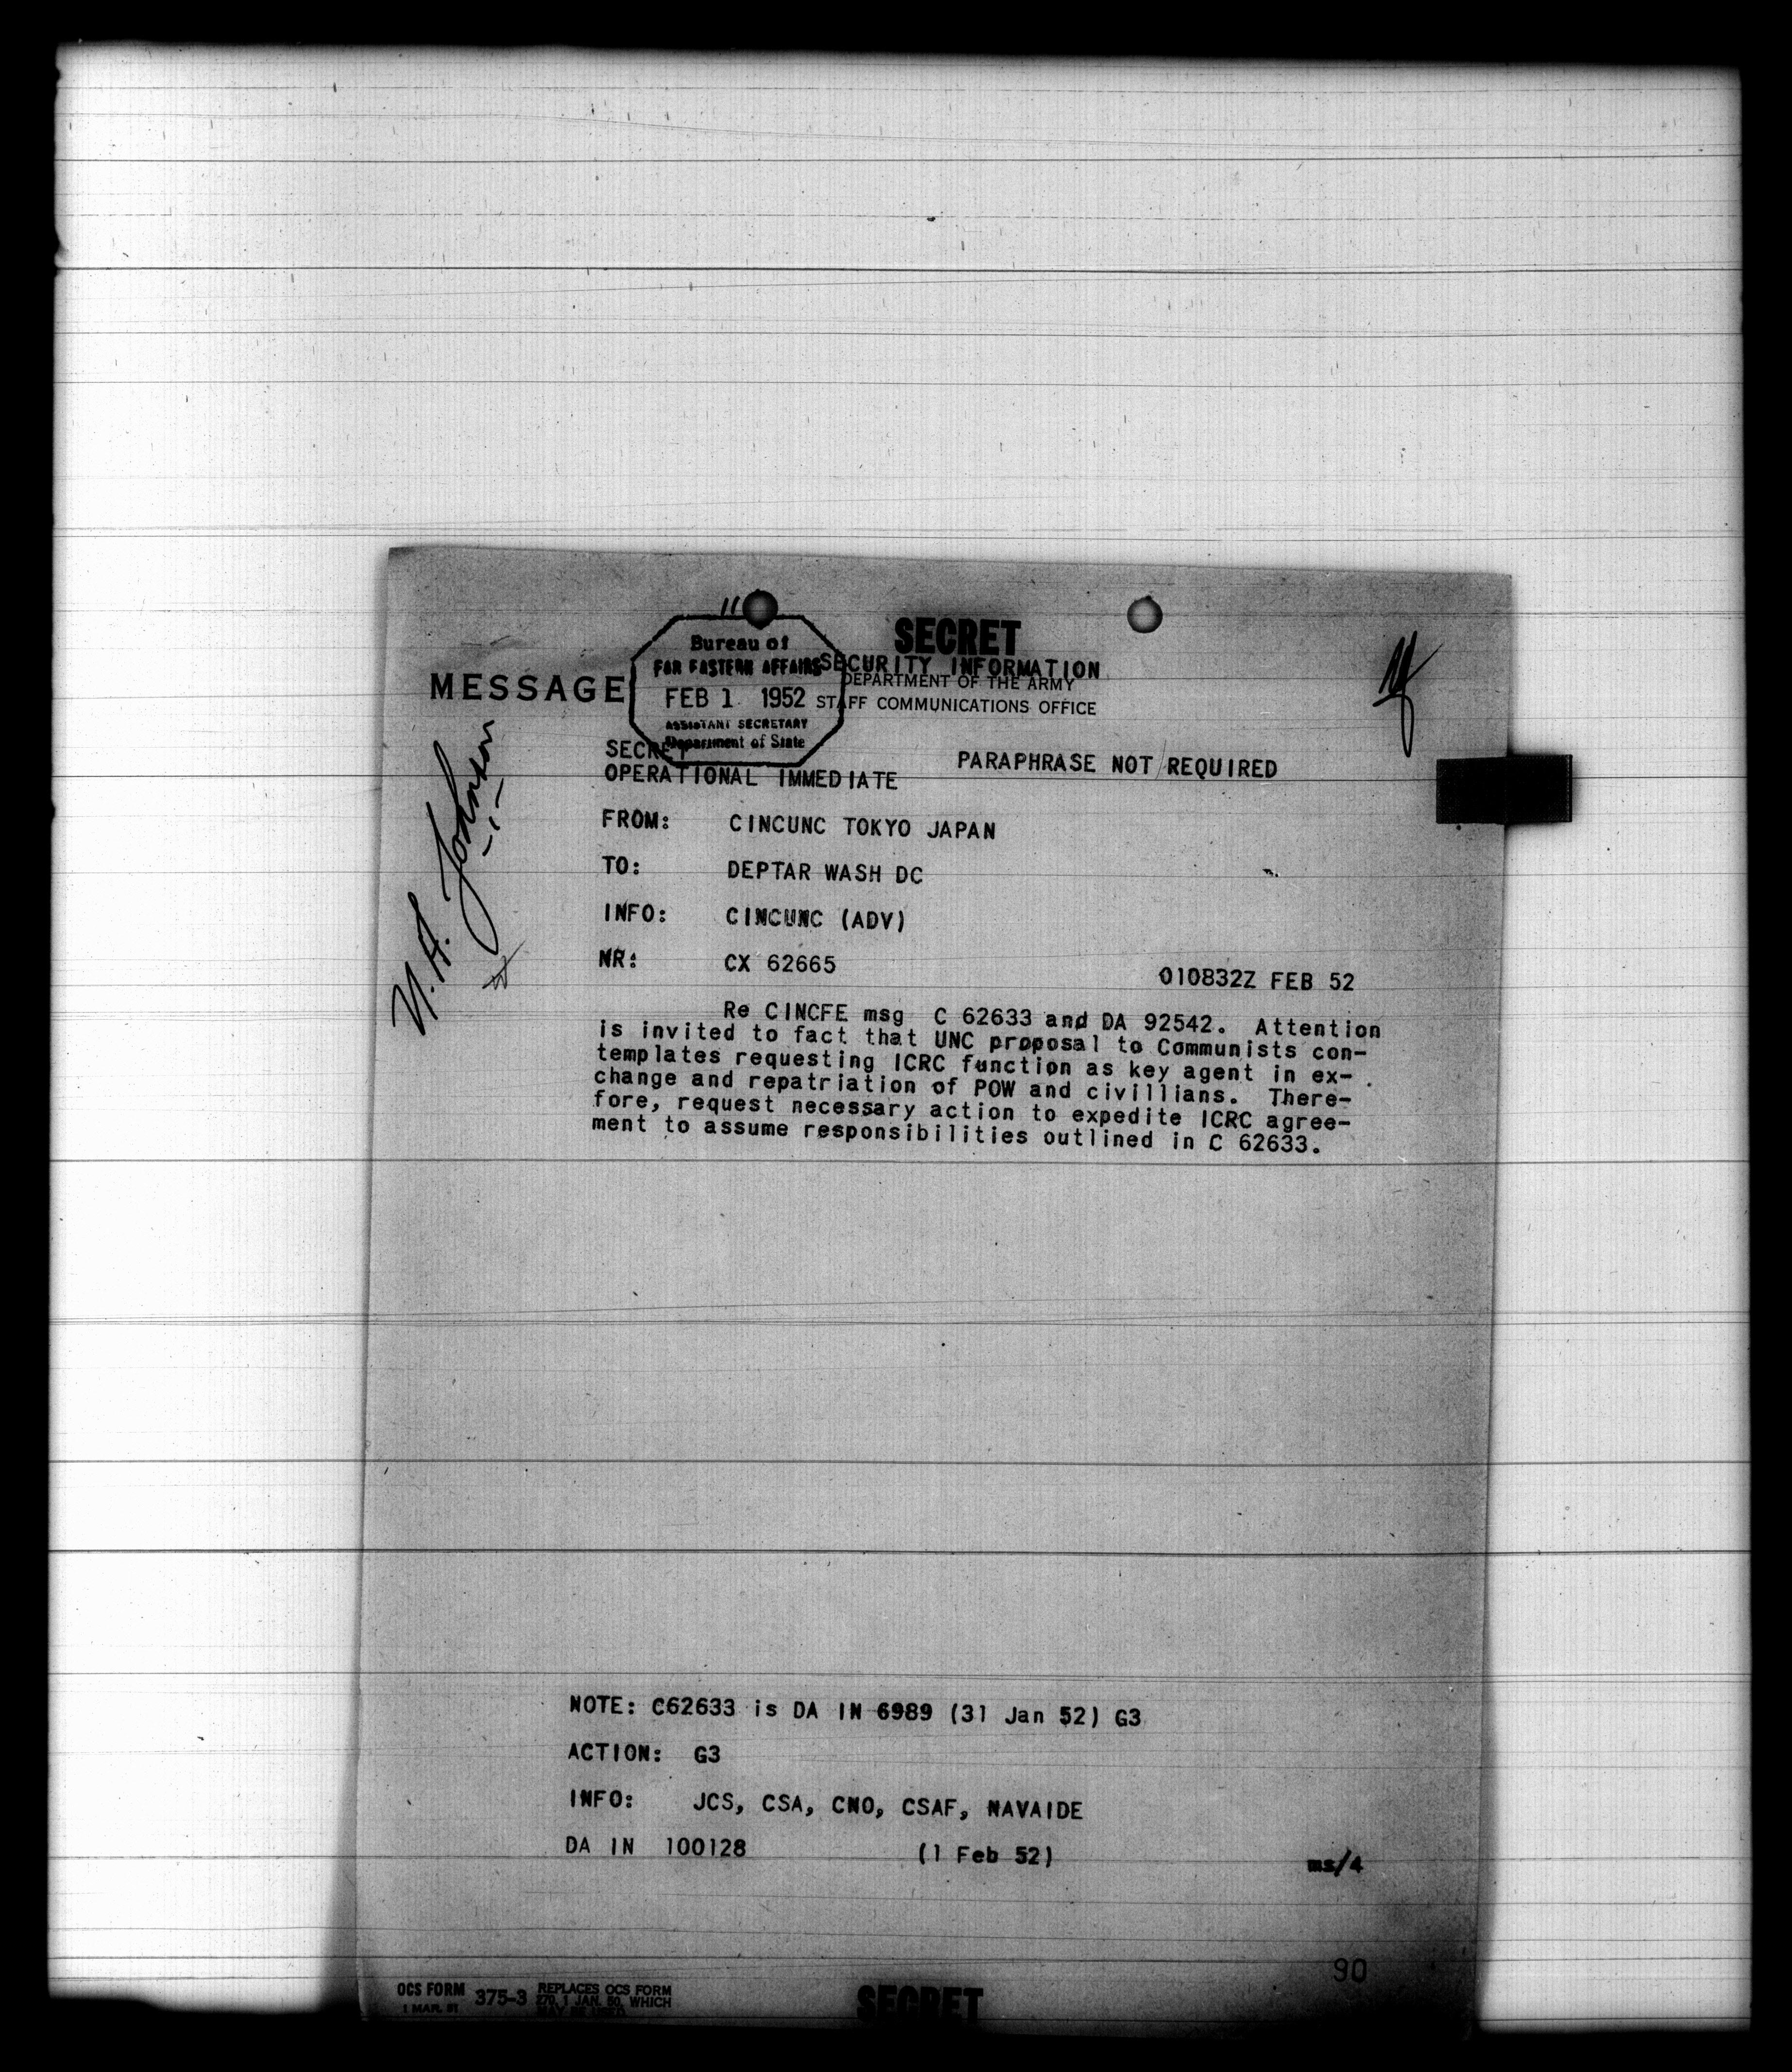 11
SECRET
SECURITY INFORMATION
DEPARTMENT OF THE ARMY
STAFF COMMUNICATIONS OFFICE
MESSAGE
Bureau of
FAR EASTERN AFFAIRS
FEB 1 1952
ASSISTANT SECRETARY
Department of State
U.A. Johnson
SECRET
PARAPHRASE NOT REQUIRED
OPERATIONAL IMMEDIATE
FROM: CINCUNC TOKYO JAPAN
TO: DEPTAR WASH DC
INFO: CINCUNC (ADV)
NR: CX 62665
010832Z FEB 52
Re CINCFE msg C 62633 and DA 92542. Attention
is invited to fact that UNC proposal to Communists con-
templates requesting ICRC function as key agent in ex-
change and repatriation of POW and civillians. There-
fore, request necessary action to expedite ICRC agree-
ment to assume responsibilities outlined in C 62633.
NOTE: C62633 is DA IN 6989 (31 Jan 52) G3
ACTION: G3
INFO: JCS, CSA, CNO, CSAF, NAVAIDE
DA IN 100128 (1 Feb 52) ms/4
90
OCS FORM 375-3 REPLACES OCS FORM
1 MAR. 51 270, 1 JAN. 50, WHICH
MAY BE USED.
SECRET